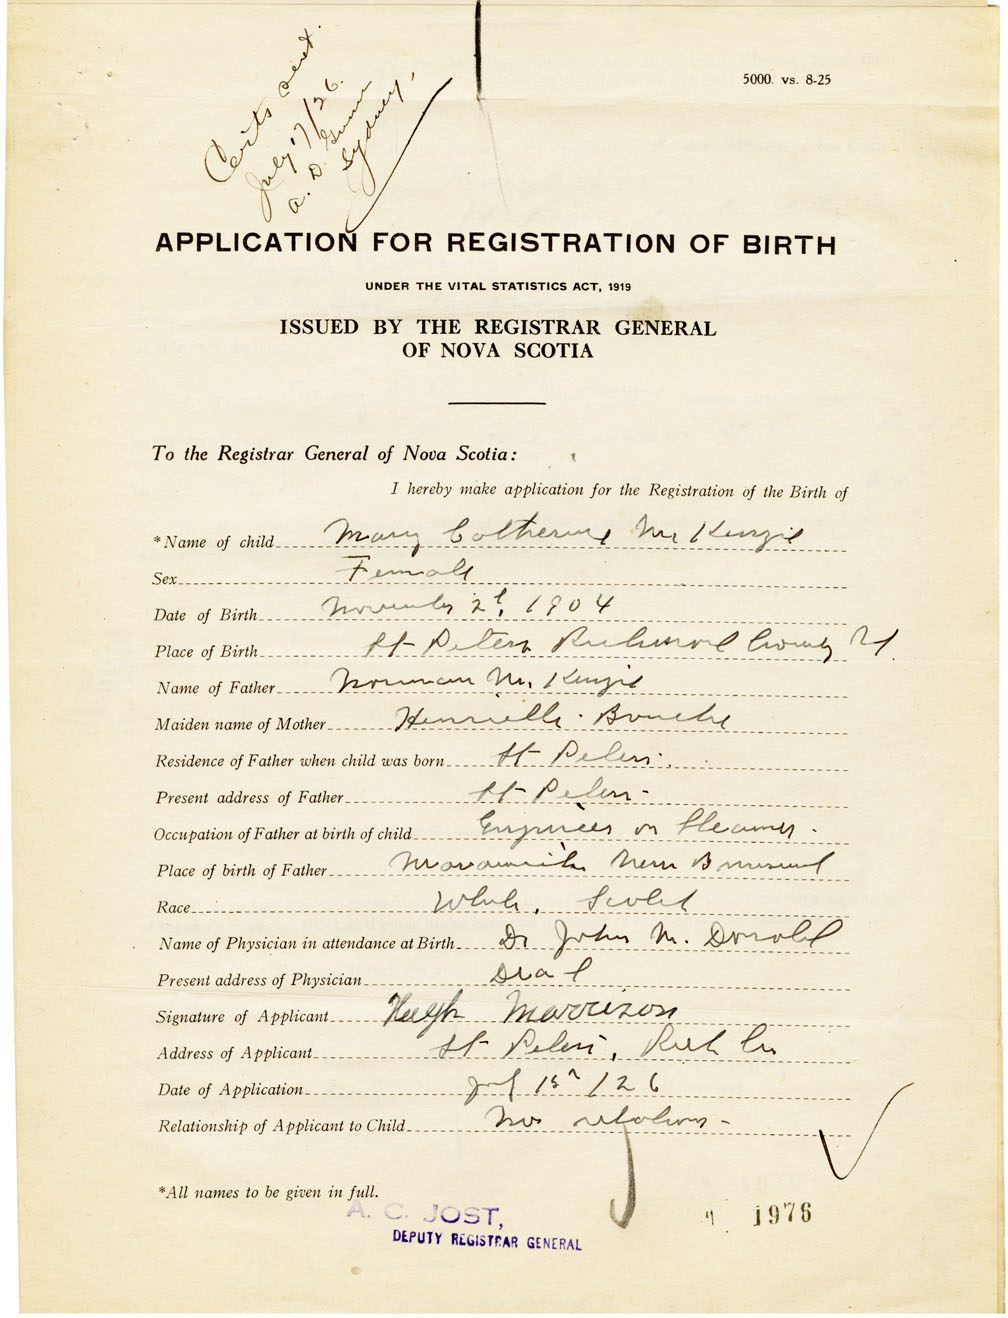 Certs sent.
July 17/26.
A. D. Gunn
Sydney.
5000. vs. 8-25
APPLICATION FOR REGISTRATION OF BIRTH
UNDER THE VITAL STATISTICS ACT, 1919
ISSUED BY THE REGISTRAR GENERAL
OF NOVA SCOTIA
To the Registrar General of Nova Scotia:
I hereby make application for the Registration of the Birth of
*Name of child Mary Catherine McKenzie
Sex Female
Date of Birth November 2d, 1904
Place of Birth St Peters Richmond County
Name of Father Norman McKenzie
Maiden name of Mother Henrietta
Residence of Father when child was born St Peters
Present address of Father St Peters -
Occupation of Father at birth of child Engineer on Steamer.
Place of birth of Father New Brunswick
Race White, Scotch
Name of Physician in attendance at Birth Dr John McDonald
Present address of Physician Dead
Signature of Applicant Hugh Morrison
Address of Applicant St Peters, Rich Co
Date of Application /26
Relationship of Applicant to Child No relation -
*All names to be given in full.
A. C. JOST,
DEPUTY REGISTRAR GENERAL
1976